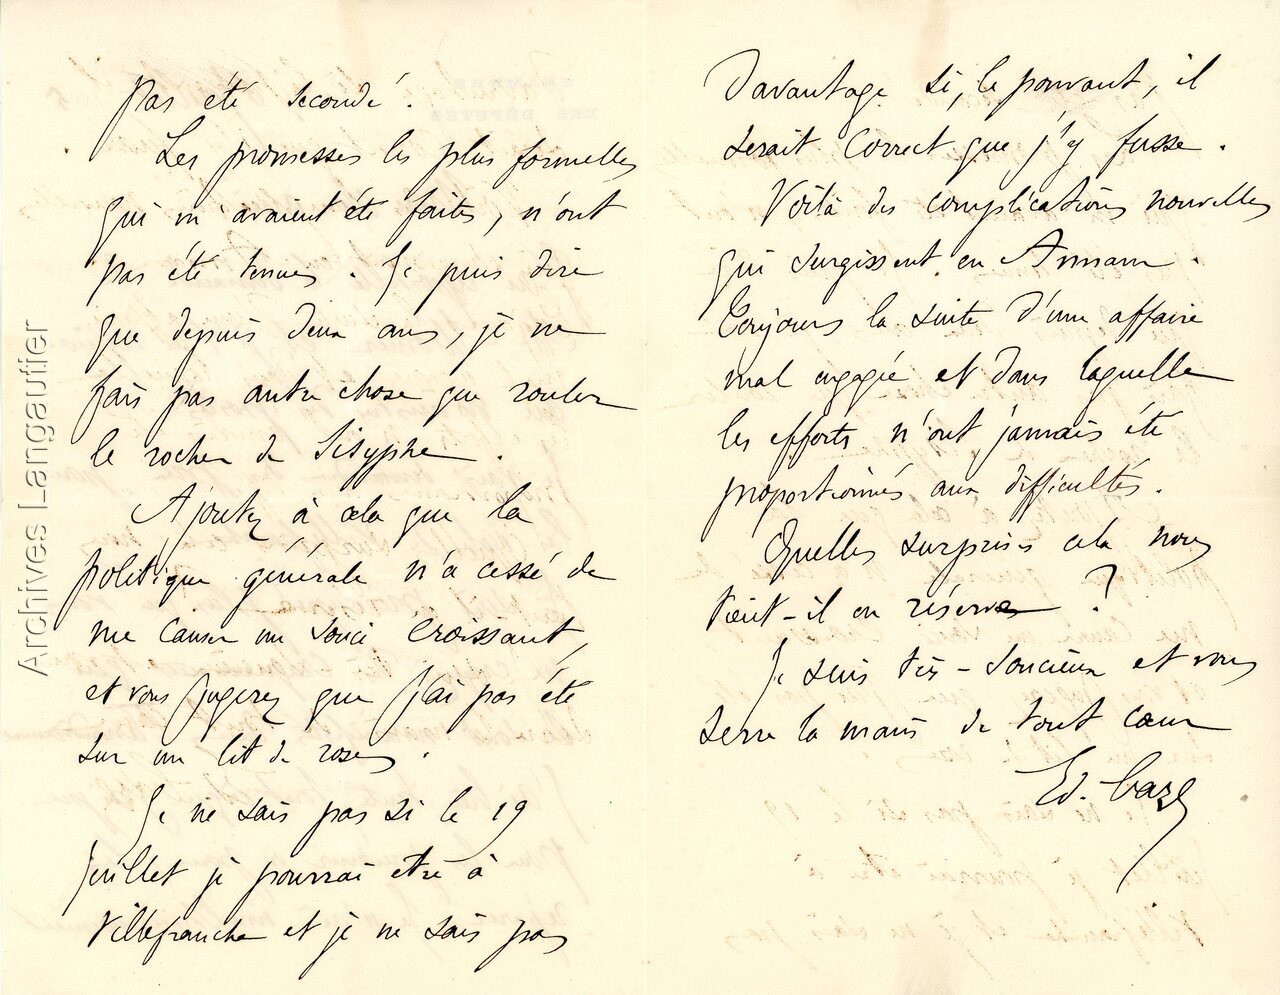 pas été secondé.
Les promesses les plus formelles
qui m'avaient été faites, n'ont
pas été tenues. Je puis dire
que depuis deux ans, je ne
fais pas autre chose que rouler
le rocher de Sisyphe.
Ajoutez à cela que la
politique générale n'a cessé de
me causer un souci croissant,
et vous jugerez que j'ai pas été
sur un lit de roses.
Je ne sais pas si le 19
juillet je pourrai être à
Villefranche et je ne sais pas
davantage si, le pouvant, il
serait correct que j'y fusse.
Voilà des complications nouvelles
qui surgissent en Annam.
Toujours la suite d'une affaire
mal engagée et dans laquelle
les efforts n'ont jamais été
proportionnés aux difficultés.
Quelles surprises cela nous
tient-il en réserve ?
Je suis très-soucieux et vous
serre la main de tout cœur
Ed. Caze
CHAMBRE
DES DÉPUTÉS
Archives Langautier